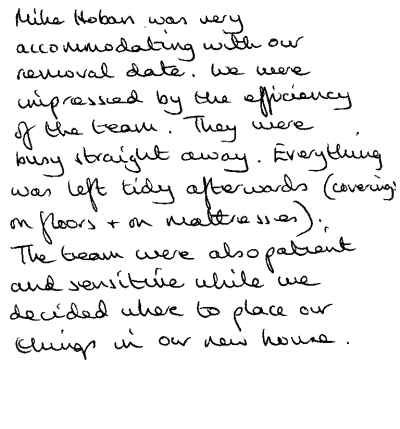 Mike Hoban was very
accommodating with our
removal date. We were
impressed by the efficiency
of the team. They were
busy straight away. Everything
was left tidy afterwards (coverings
on floors + on mattresses).
The team were also patient
and sensitive while we
decided where to place our
things in our new house.